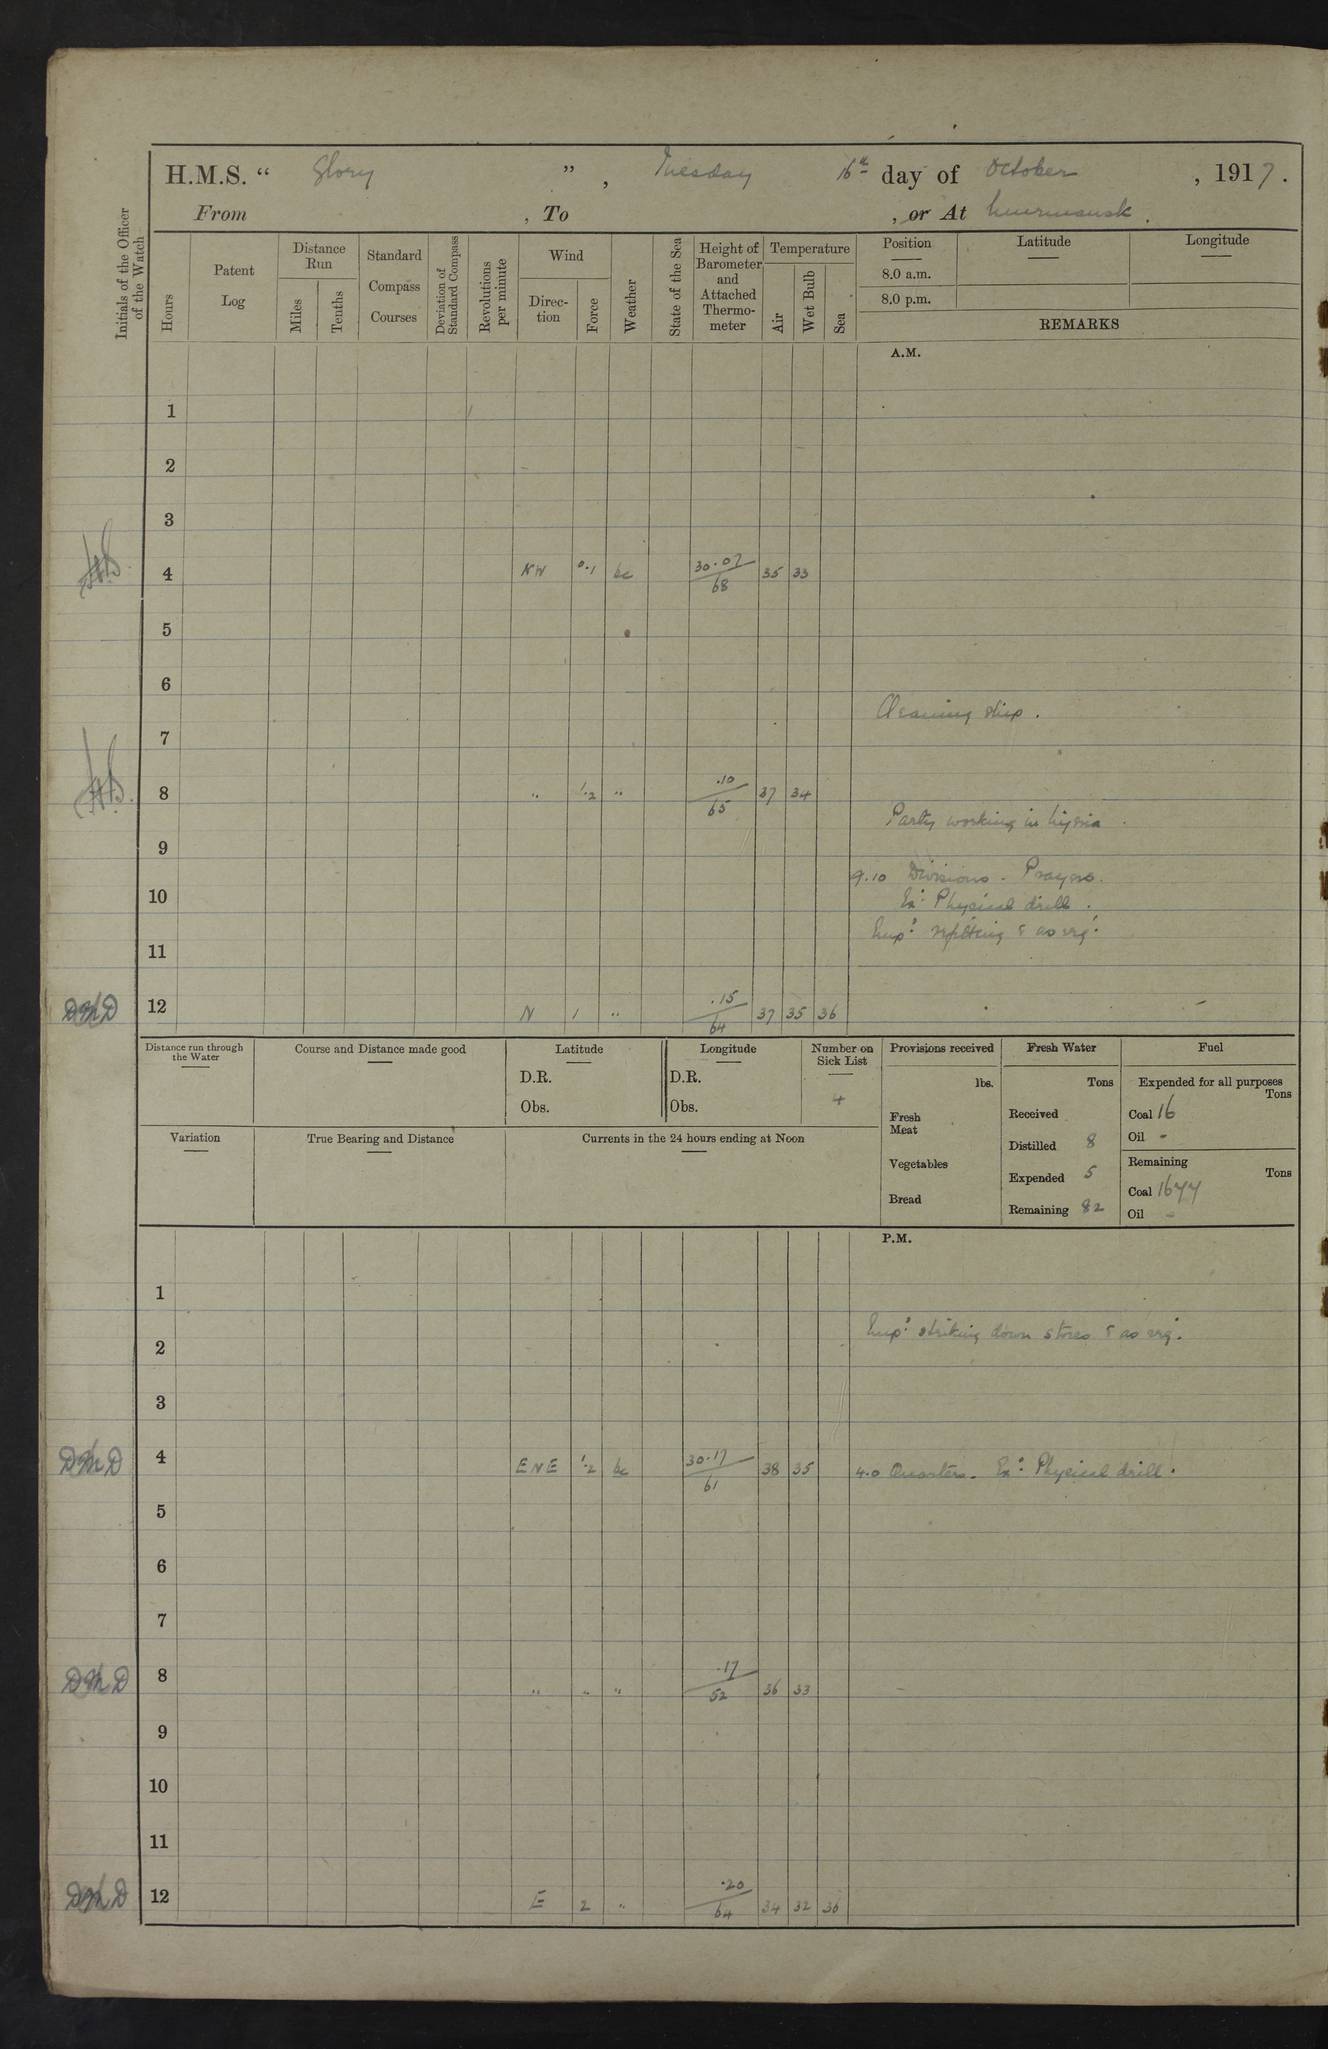 H.M.S. “ Glory ” , Tuesday 16th day of October , 1917 .
From , To , or At Murmansk .
Initials of the Officer of the Watch
Hours
Patent Log
Distance Run
Miles
Tenths
Standard Compass Courses
Deviation of Standard Compass
Revolutions per minute
Wind
Direc-tion
Force
Weather
State of the Sea
Height of Barometer and Attached Thermo-meter
Temperature
Air
Wet Bulb
Sea
Position
Latitude
Longitude
8.0 a.m.
8.0 p.m.
REMARKS
A.M.
1
2
3
4 NW 0.1 bc 30.07/68 35 33
5
6
Cleaning ship .
7
8 " 1.2 " .10/65 37 34
Party working in
9
9.10 Divisions . Prayers .
10
Ex: Physical drill .
Emp: refitting & as req:
11
DMD 12 N 1 " .15/64 37 35 36
Distance run through the Water
Course and Distance made good
Latitude
D.R.
Obs.
Longitude
D.R.
Obs.
Number on Sick List
4
Provisions received
lbs.
Fresh Meat
Vegetables
Bread
Fresh Water
Tons
Received
Distilled 8
Expended 5
Remaining 82
Fuel
Expended for all purposes
Tons
Coal 16
Oil -
Remaining
Tons
Coal 1677
Oil -
Variation
True Bearing and Distance
Currents in the 24 hours ending at Noon
P.M.
1
Emp: striking down stores & as req:
2
3
DMD 4 ENE 1.2 bc 30.17/61 38 35 4.0 Quarters . Ex: Physical drill .
5
6
7
DMD 8 " " " .17/52 36 33
9
10
11
DMD 12 E 2 " .20/64 34 32 36